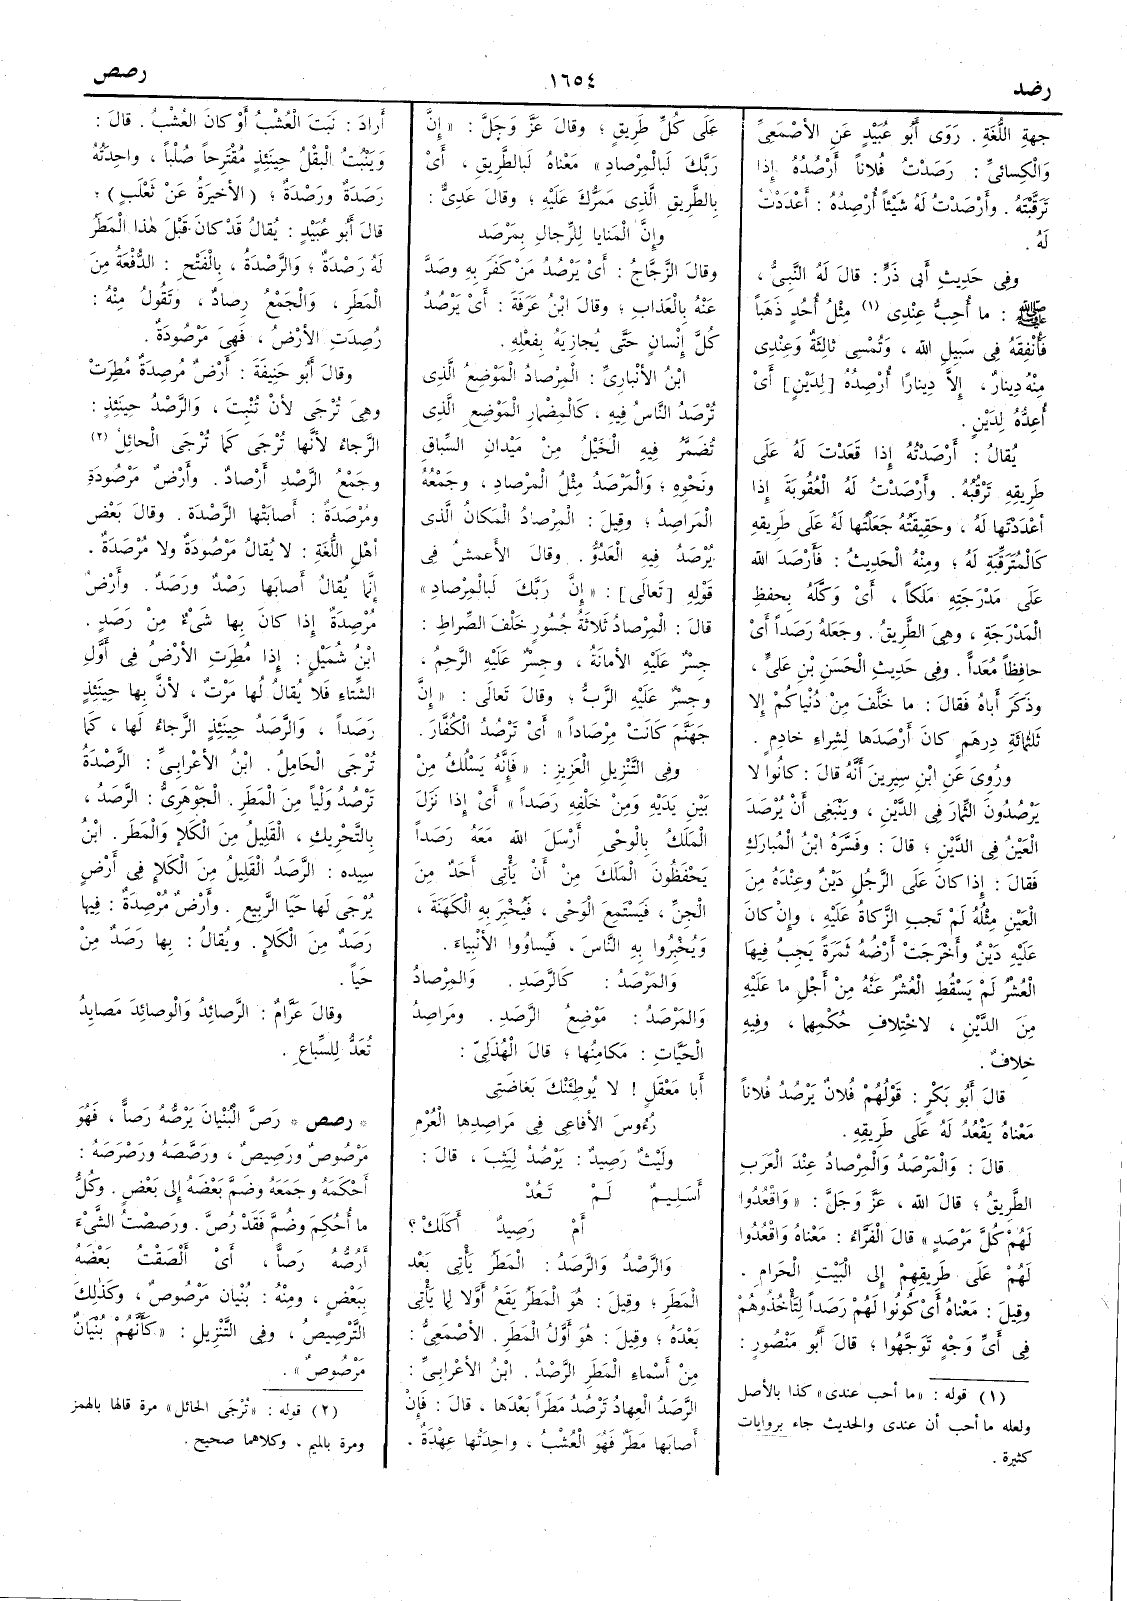 رضد
١٦٥٤
رصص
جهةِ اللُّغَةِ . رَوَى أَبُو عُبَيْدٍ عَنِ الأَصْمَعِيِّ
وَالْكِسائِيِّ : رَصَدْتُ فُلاناً أَرْصُدُهُ إِذا
تَرَقَّبْتَهُ . وأَرْصَدْتُ لَهُ شَيْئاً أُرْصِدُهُ : أَعْدَدْتُ
لَهُ .
وفِى حَدِيثِ أَبِى ذَرٍّ : قالَ لَهُ النَّبِىُّ ،
ﷺ : ما أُحِبُّ عِنْدِى (١) مِثْلُ أُحُدٍ ذَهَباً
فَأُنْفِقَهُ فِى سَبِيلِ اللهِ ، وَتُمْسِى ثالِثَةٌ وَعِنْدِى
مِنْهُ دِينارٌ ، إِلاَّ دِينارًا أُرْصِدُهُ [لِدَيْنٍ] أَىْ
أُعِدُّهُ لِدَيْنٍ .
يُقالُ : أَرْصَدْتُهُ إِذا قَعَدْتَ لَهُ عَلَى
طَرِيقِهِ تَرْقُبُهُ . وأَرْصَدْتُ لَهُ الْعُقُوبَةَ إِذا
أَعْدَدْتَها لَهُ ، وحَقِيقَتُهُ جَعَلْتُها لَهُ عَلَى طَرِيقِهِ
كَالْمُتَرَقِّبَةِ لَهُ ؛ ومِنْهُ الْحَدِيثُ : فَأَرْصَدَ اللهُ
عَلَى مَدْرَجَتِهِ مَلَكاً ، أَىْ وَكَّلَهُ بِحفظِ
الْمَدْرَجَةِ ، وهِىَ الطَّرِيقُ . وجَعَلَهُ رَصَداً أَىْ
حافِظاً مُعَداًّ . وفِى حَدِيثِ الْحَسَنِ بْنِ عَلِىٍّ ،
وذَكَرَ أَباهُ فَقالَ : ما خَلَّفَ مِنْ دُنْياكُمْ إِلا
ثَلَثمائَةِ دِرهَمٍ كانَ أَرْصَدَها لِشِراءِ خادِمٍ .
ورُوِىَ عَنِ ابْنِ سِيرِينَ أَنَّهُ قالَ : كانُوا لا
يَرْصُدُونَ الثِّمارَ فِى الدَّيْنِ ، ويَنْبَغِى أَنْ يُرْصَدَ
الْعَيْنُ فِى الدَّيْنِ ؛ قالَ : وفَسَّرَهُ ابْنُ الْمُبارَكِ
فَقالَ : إِذا كانَ عَلَى الرَّجُلِ دَيْنٌ وعِنْدَهُ مِنَ
الْعَيْنِ مِثْلُهُ لَمْ تَجِبِ الزَّكاةُ عَلَيْهِ ، وإِنْ كانَ
عَلَيْهِ دَيْنٌ وأَخْرَجَتْ أَرْضُهُ ثَمَرَةً يَجِبُ فِيها
الْعُشْرُ لَمْ يَسْقُطِ الْعُشْرُ عَنْهُ مِنْ أَجْلِ ما عَلَيْهِ
مِنَ الدَّيْنِ ، لاخْتِلافِ حُكْمِها ، وفِيهِ
خِلافٌ .
قالَ أَبُو بَكْرٍ : قَوْلُهُمْ فُلانٌ يَرْصُدُ فُلاناً
مَعْناهُ يَقْعُدُ لَهُ عَلَى طَرِيقِهِ .
قالَ : وَالْمَرْصَدُ وَالْمِرصادُ عِنْدَ الْعَرَبِ
الطَّرِيقُ ؛ قالَ اللهُ ، عَزَّ وَجَلَّ : « وَاقْعُدُوا
لَهُمْ كُلَّ مَرْصَدٍ » قالَ الْفَرَّاءُ : مَعْناهُ وَاقْعُدُوا
لَهُمْ عَلَى طَرِيقِهِمْ إِلَى الْبَيْتِ الْحَرامِ .
وقِيلَ : مَعْناهُ أَىْ كُونُوا لَهُمْ رَصَداً لِتَأْخُذُوهُمْ
فِى أَىِّ وَجْهٍ تَوَجَّهُوا ؛ قالَ أَبُو مَنْصُورٍ :
(١) قوله : «ما أحب عندى» كذا بالأصل
ولعله ما أحب أن عندى والحديث جاء بروايات
كثيرة .
عَلَى كُلِّ طَرِيقٍ ؛ وقالَ عَزَّ وَجَلَّ : « إِنَّ
رَبَّكَ لَبِالْمِرْصادِ » مَعْناهُ لَبِالطَّرِيقِ ، أَىْ
بِالطَّرِيقِ الَّذِى مَمَرُّكَ عَلَيْهِ ؛ وقالَ عَدِىٌّ :
وإِنَّ الْمَنايا لِلرِّجالِ بِمَرْصَد
وقالَ الزَّجَّاجُ : أَىْ يَرْصُدُ مَنْ كَفَرَ بِهِ وصَدَّ
عَنْهُ بِالْعَذابِ ؛ وقالَ ابْنُ عَرَفَةَ : أَىْ يَرْصُدُ
كُلَّ إِنْسانٍ حَتَّى يُجازِيَهُ بِفعْلِهِ .
ابْنُ الأَنْبارِىِّ : الْمِرْصادُ الْمَوْضِعُ الَّذِى
تُرْصَدُ النَّاسُ فِيهِ ، كَالْمِضْمارِ الْمَوْضِعِ الَّذِى
تُضَمَّرُ فِيهِ الْخَيْلُ مِنْ مَيْدانِ السِّباقِ
ونَحْوِهِ ؛ وَالْمَرْصَدُ مِثْلُ الْمِرْصادِ ، وجَمْعُهُ
الْمَراصِدُ ؛ وقِيلَ : الْمِرْصادُ الْمَكانُ الَّذِى
يُرْصَدُ فِيهِ الْعَدُوُّ . وقالَ الأَعْمَشُ فِى
قَوْلِهِ [تَعالَى] : « إِنَّ رَبَّكَ لَبِالْمِرْصادِ »
قالَ : الْمِرْصادُ ثَلاثَةُ جُسُورٍ خَلْفَ الصِّراطِ :
جِسْرٌ عَلَيْهِ الأَمانَةُ ، وجِسْرٌ عَلَيْهِ الرَّحِمُ ،
وجِسْرٌ عَلَيْهِ الرَّبُّ ؛ وقالَ تَعالَى : « إِنَّ
جَهَنَّمَ كانَتْ مِرْصاداً » أَىْ تَرْصُدُ الْكُفَّارَ .
وفِى التَّنْزِيلِ الْعَزِيزِ : « فَإِنَّهُ يَسْلُكُ مِنْ
بَيْنِ يَدَيْهِ وَمِنْ خَلْفِهِ رَصَداً » أَىْ إِذا نَزَلَ
الْمَلَكُ بِالْوَحْىِ أَرْسَلَ اللهُ مَعَهُ رَصَداً
يَحْفَظُونَ الْمَلَكَ مِنْ أَنْ يَأْتِىَ أَحَدٌ مِنَ
الْجِنِّ ، فَيَسْتَمِعَ الْوَحْىَ ، فَيُخْبَرَ بِهِ الْكَهَنَةَ ،
وَيُخْبِرُوا بِهِ النَّاسَ ، فَيُساوُوا الأَنْبِياءَ .
وَالْمَرْصَدُ : كَالرَّصَدِ . وَالْمِرْصادُ
وَالْمَرْصَدُ : مَوْضِعُ الرَّصَدِ . ومَراصِدُ
الْحَيَّاتِ : مَكامِنُها ؛ قالَ الْهُذَلِىّ :
أَبا مَعْقَلٍ ! لا يُوطِئَنْكَ بَغاضَتِى
رُءُوسَ الأَفاعِى فِى مَراصِدِها الْعُرْمِ
ولَيْثٌ رَصِيدٌ : يَرْصُدُ لِيَثِبَ ، قالَ :
أَسَلِيمٌ لَمْ تَعُدْ
أَمْ رَصِيدٌ أَكَلَكْ ؟
وَالرَّصْدُ وَالرَّصَدُ : الْمَطَرُ يَأْتِى بَعْدَ
الْمَطَرِ ؛ وقِيلَ : هُوَ الْمَطَرُ يَقَعُ أَوَّلا لِما يَأْتِى
بَعْدَهُ ؛ وقِيلَ : هُوَ أَوَّلُ الْمَطَرِ . الأَصْمَعِىُّ :
مِنْ أَسْماءِ الْمَطَرِ الرَّصْدُ . ابْنُ الأَعْرابِىِّ :
الرَّصَدُ الْعِهادُ تَرْصُدُ مَطَراً بَعْدَها ، قالَ : فَإِنْ
أَصابَها مَطَرٌ فَهُوَ الْعُشْبُ ، واحِدَتُها عِهْدَةٌ .
أَرادَ : نَبَتَ الْعُشْبُ أَوْ كانَ الْعُشْبُ . قالَ :
وَيَنْبُتُ الْبَقْلُ حِينَئِذٍ مُقْتَرِحاً صُلْباً ، واحِدَتُهُ
رَصَدَةٌ ورَصْدَةٌ ؛ (الأَخِيرَةُ عَنْ ثَعْلَبٍ) ؛
قالَ أَبُو عُبَيْدٍ : يُقالُ قَدْ كانَ قَبْلَ هٰذا الْمَطَرِ
لَهُ رَصَدَةٌ ؛ وَالرَّصْدَةُ ، بِالْفَتْحِ : الدُّفْعَةُ مِنَ
الْمَطَرِ ، وَالْجَمْعُ رِصادٌ ، وتَقُولُ مِنْهُ :
رُصِدَتِ الأَرْضُ ، فَهِىَ مَرْصُودَةٌ .
وقالَ أَبُو حَنِيفَةَ : أَرْضٌ مُرصِدَةٌ مُطِرَتْ
وهِىَ تُرْجَى لأَنْ تُنْبِتَ ، وَالرَّصَدُ حِينَئِذٍ :
الرَّجاءُ لأَنَّها تُرْجَى كَما تُرْجَى الْحائِلُ (٢)
وجَمْعُ الرَّصَدِ أَرْصادٌ . وأَرْضٌ مَرْصُودَةٌ
ومُرْصَدَةٌ : أَصابَتْها الرَّصْدَةُ . وقالَ بَعْضُ
أَهْلِ اللُّغَةِ : لا يُقالُ مَرْصُودَةٌ ولا مُرْصَدَةٌ .
إِنَّما يُقالُ أَصابَها رَصْدٌ ورَصَدٌ . وأَرْضٌ
مُرْصِدَةٌ إِذا كانَ بِها شَىْءٌ مِنْ رَصَدٍ .
ابْنُ شُمَيْلٍ : إِذا مُطِرَتِ الأَرْضُ فِى أَوَّلِ
الشِّتاءِ فَلا يُقالُ لَها مَرْتٌ ، لأَنَّ بِها حِينَئِذٍ
رَصَداً ، وَالرَّصَدُ حِينَئِذٍ الرَّجاءُ لَها ، كَما
تُرْجَى الْحَامِلُ . ابْنُ الأَعْرابِىِّ : الرَّصْدَةُ
تَرْصُدُ وَلْياً مِنَ الْمَطَرِ . الْجَوْهَرِىُّ : الرَّصَدُ ،
بِالتَّحْرِيكِ ، الْقَلِيلُ مِنَ الْكَلإِ وَالْمَطَرِ . ابْنُ
سِيده : الرَّصَدُ الْقَلِيلُ مِنَ الْكَلإِ فِى أَرْضٍ
يُرْجَى لَها حَيَا الرَّبِيعِ . وأَرْضٌ مُرْصِدَةٌ : فِيها
رَصَدٌ مِنَ الْكَلإِ . ويُقالُ : بِها رَصَدٌ مِنْ
حَياً .
وقالَ عَرَّامٌ : الرَّصائِدُ وَالْوصائِدُ مَصايِدُ
تُعَدُّ لِلسِّباعِ .
* رصص * رَصَّ الْبُنْيانَ يَرُصُّهُ رَصاًّ ، فَهُوَ
مَرْصُوصٌ ورَصِيصٌ ، ورَصَّصَهُ ورَصْرَصَهُ :
أَحْكَمَهُ وجَمَعَهُ وضَمَّ بَعْضَهُ إِلَى بَعْضٍ . وكُلُّ
ما أُحْكِمَ وضُمَّ فَقَدْ رُصَّ . ورَصَصْتُ الشَّىْءَ
أَرُصُّهُ رَصاًّ ، أَىْ أَلْصَقْتُ بَعْضَهُ
بِبَعْضٍ ، ومِنْهُ : بُنْيان مَرْصُوصٌ ، وكَذٰلِكَ
التَّرْصِيصُ ، وفِى التَّنْزِيلِ : « كَأَنَّهُمْ بُنْيَانٌ
مَرْصُوصٌ » .
(٢) قوله : «تُرْجَى الحائل» مرة قالها بالهمز
ومرة بالميم . وكلاهما صحيح .